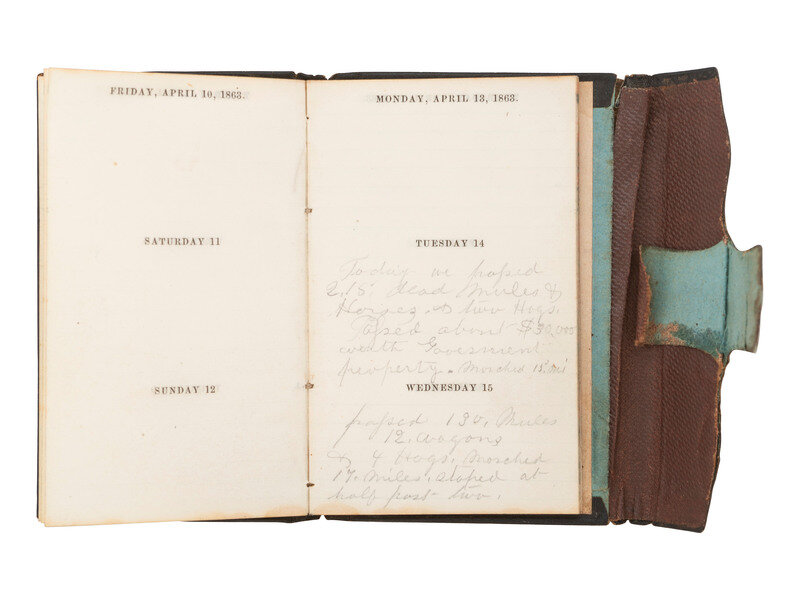 FRIDAY, APRIL 10, 1863.
SATURDAY 11
SUNDAY 12
MONDAY, APRIL 13, 1863.
TUESDAY 14
Today we passed
215 dead Mules &
Horses & two Hogs.
Passed about $30,000
worth Goverment
property. Marched 15. mi
WEDNESDAY 15
passed 130, Mules
12, wagons
& 4 Hogs, Marched
17, Miles, stoped at
half past two.